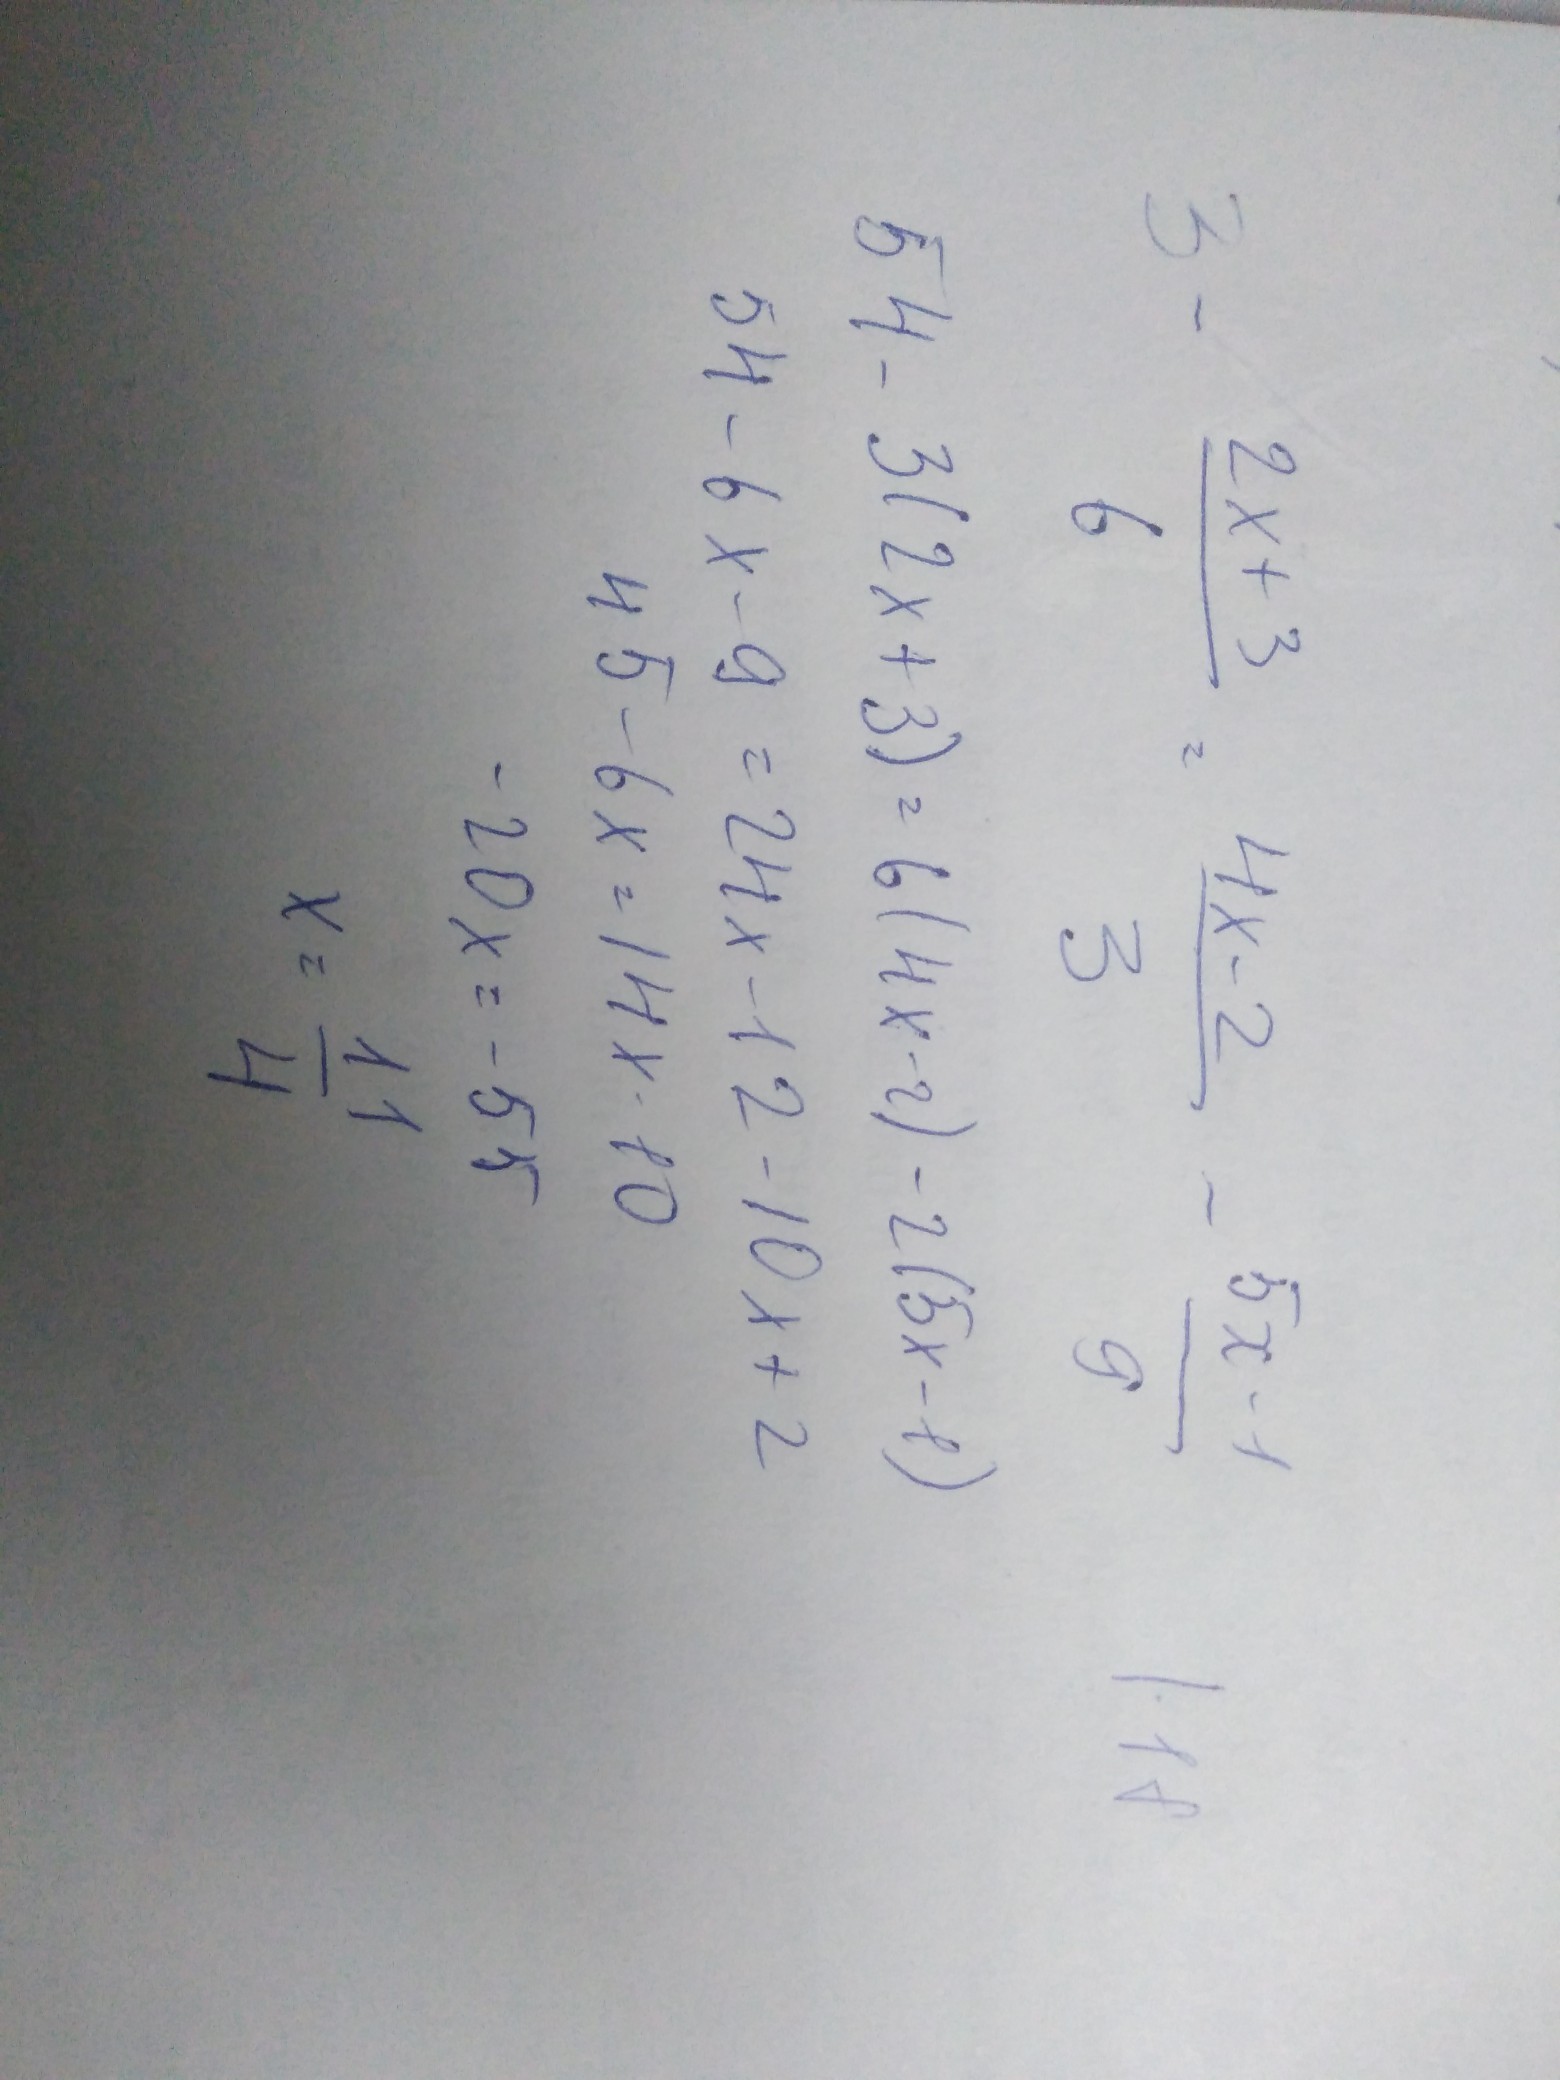 3 - \frac{2x+3}{6} = \frac{4x-2}{3} - \frac{5x-1}{9} | · 18
54 - 3(2x+3) = 6(4x-2) - 2(5x-1)
54 - 6x - 9 = 24x - 12 - 10x + 2
45 - 6x = 14x - 10
-20x = -55
x = \frac{11}{4}